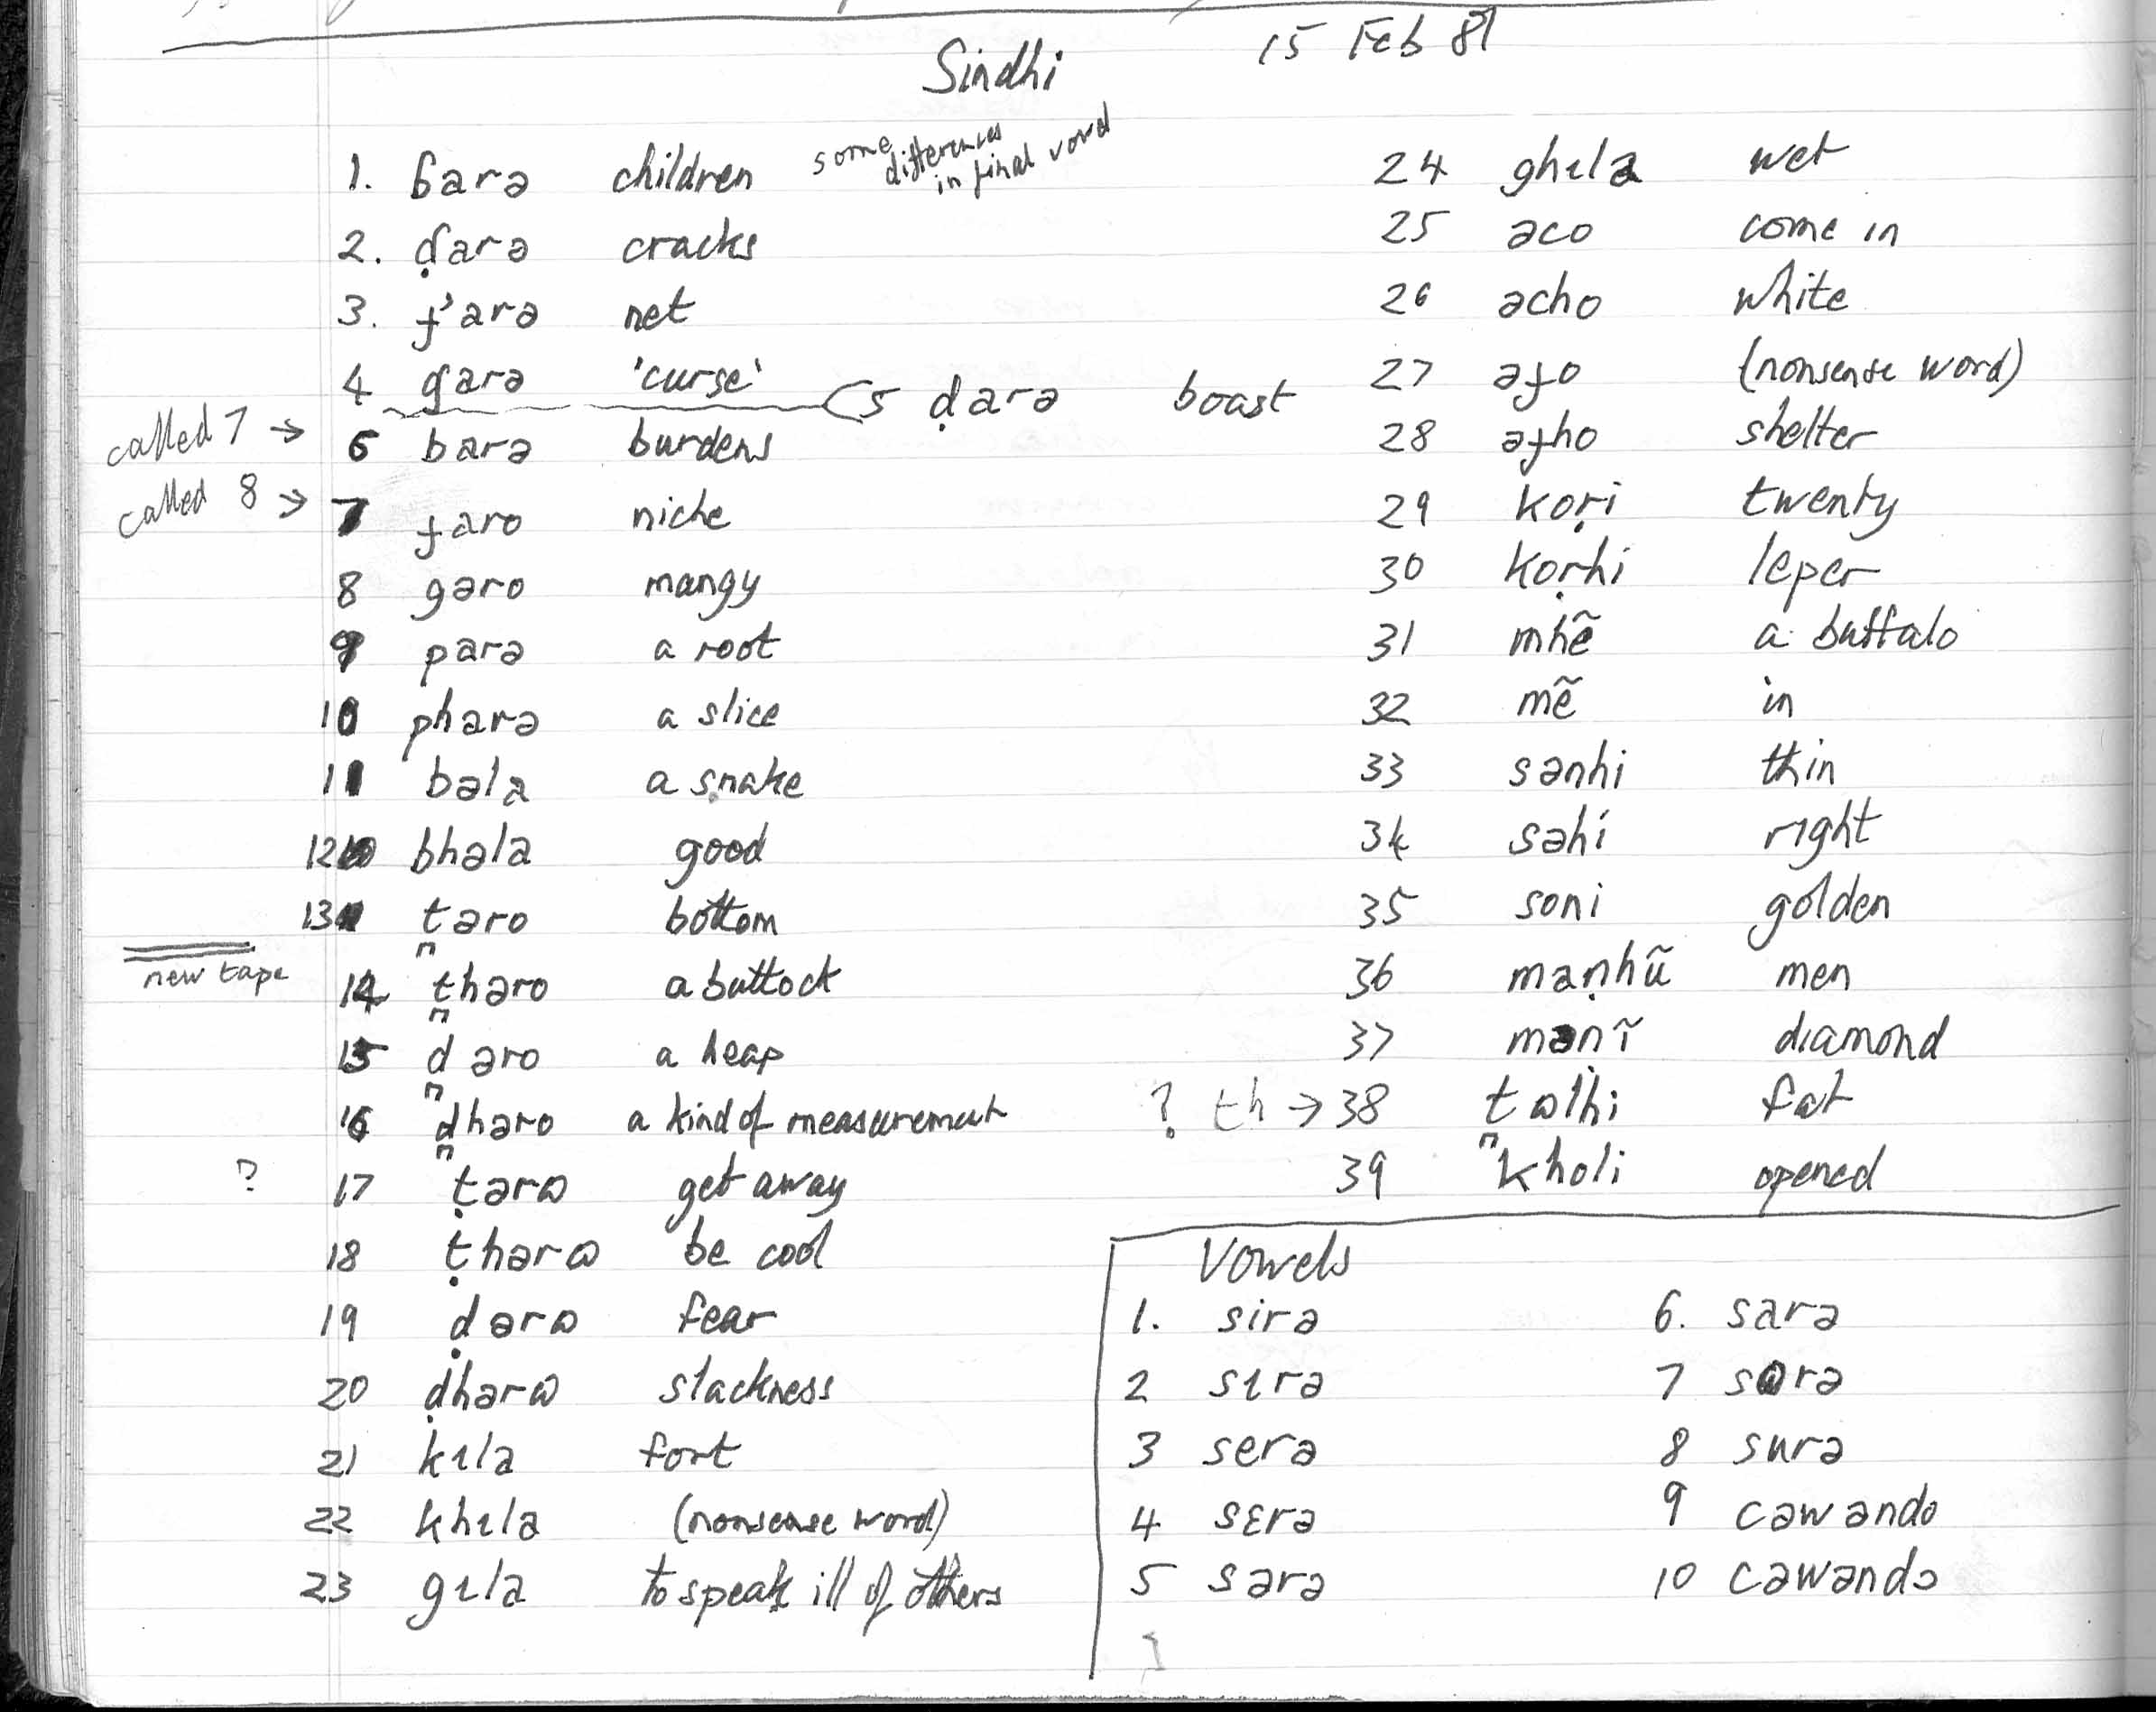 Sindhi 15 Feb 81
1. ɓarə children some differences in final vowel
2. ɗ̣arə cracks
3. ʄarə net
4 ɠarə 'curse'
5 ḍarə boast
called 7 → 6 barə burdens
called 8 → 7 ɟaro niche
8 gəro mangy
9 parə a root
10 pharə a slice
11 bəla a snake
12 bhəla good
13 t̪əro bottom
new tape
14 t̪həro a buttock
15 d̪əro a heap
16 d̪həro a kind of measurement
? 17 ṭərɷ get away
18 ṭhərɷ be cool
19 ḍərɷ fear
20 ḍhərɷ slackness
21 kɪla fort
22 khɪla (nonsense word)
23 gɪla to speak ill of others
24 ghɪla wet
25 əco come in
26 əcho white
27 əɟo (nonsense word)
28 əɟho shelter
29 koṛi twenty
30 koṛhi leper
31 mhẽ a buffalo
32 mẽ in
33 sənhi thin
34 səhi right
35 soni golden
36 maṇhũ men
37 mənĩ diamond
? th → 38 t̪ɷlhi fat
39 kholi opened
Vowels
1. sirə
2 sɪrə
3 serə
4 sɛrə
5 sarə
6. sarə
7 sɷrə
8 surə
9 cawando
10 cəwando